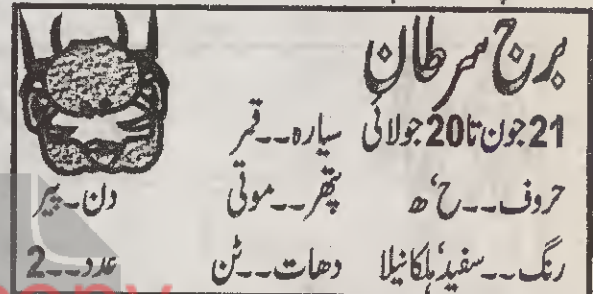 برج سرطان
21 جون تا 20 جولائی سیارہ۔۔قمر
حروف۔۔ح‘ھ پتھر۔۔موتی دن۔پیر
رنگ۔۔سفید‘ہلکا نیلا دھات۔۔ٹن عدد۔۔2